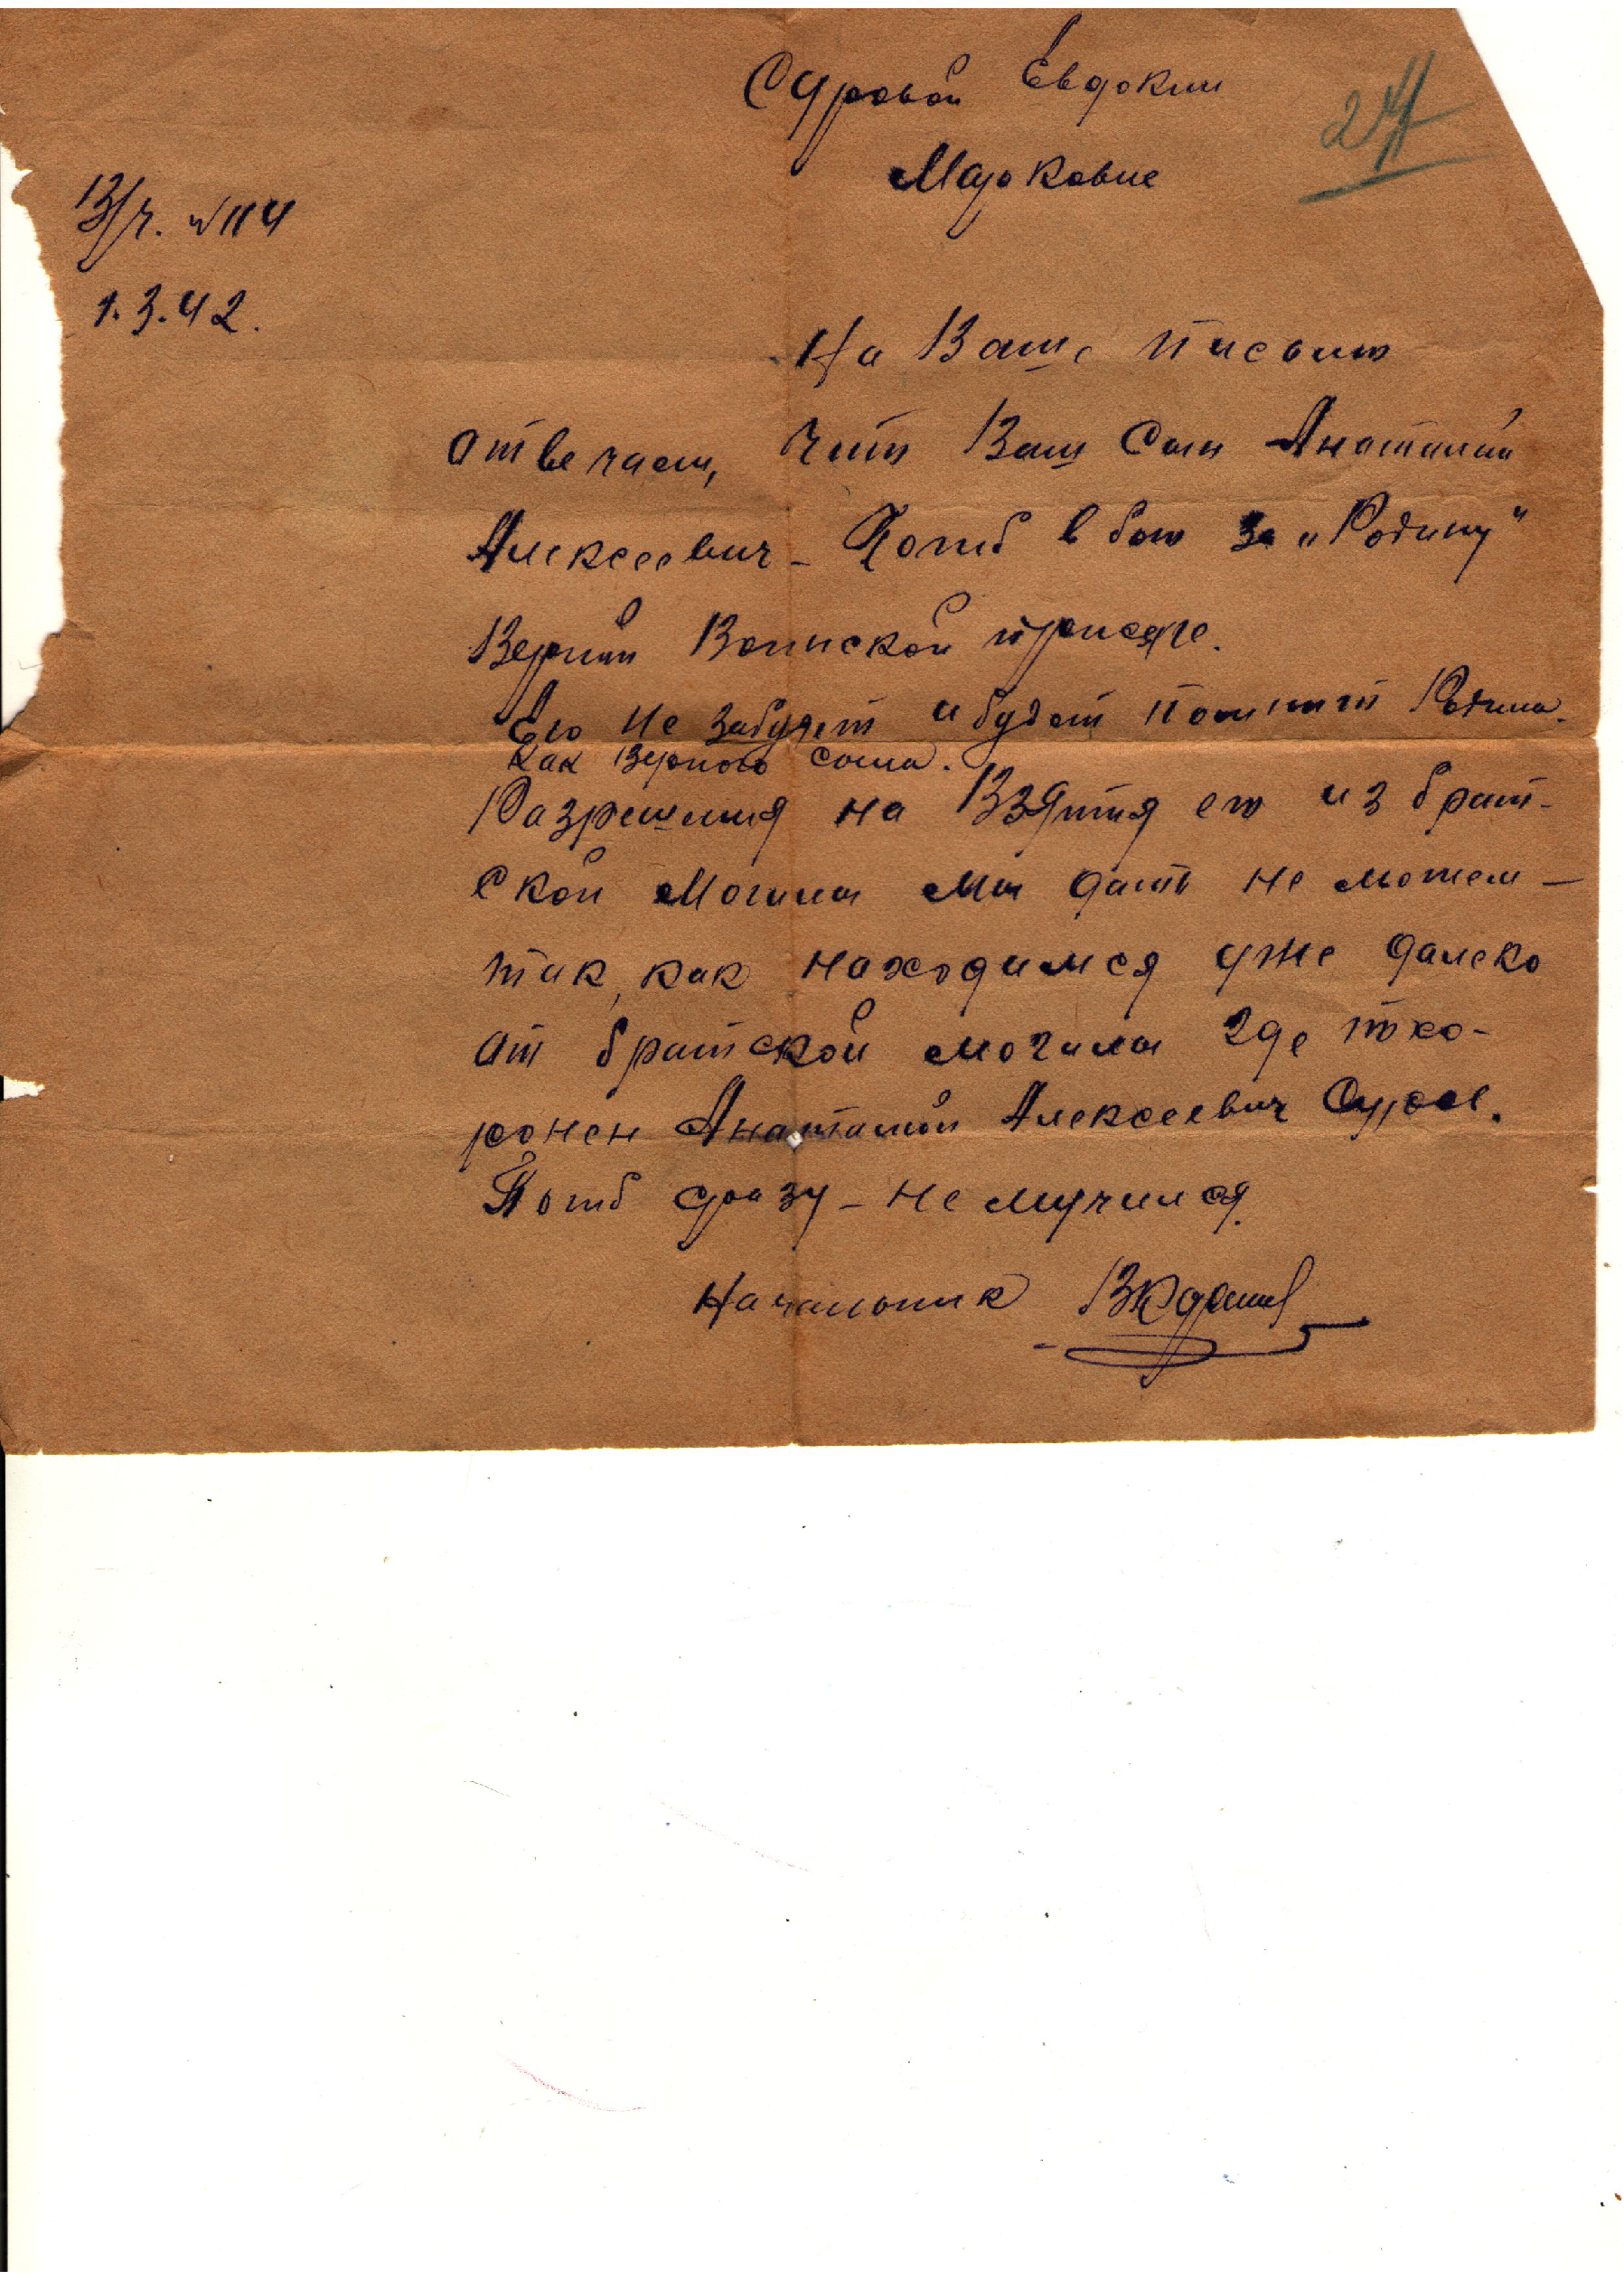 Суровой Евдокии
27
Марковне
В/ч. №114
1.3.42.
На Ваше письмо
отвечаем, что Ваш сын Анатолий
Алексеевич – Погиб в бою за „Родину“
Верный Воинской присяге.
Его не забудет и будет помнит Родина.
как верного сына.
Разрешения на Взятия его из брат-
ской могилы мы дать не можем –
так, как находимся уже далеко
от братской могилы где похо-
ронен Анатолий Алексеевич Суров.
Погиб сразу – не мучился.
Начальник